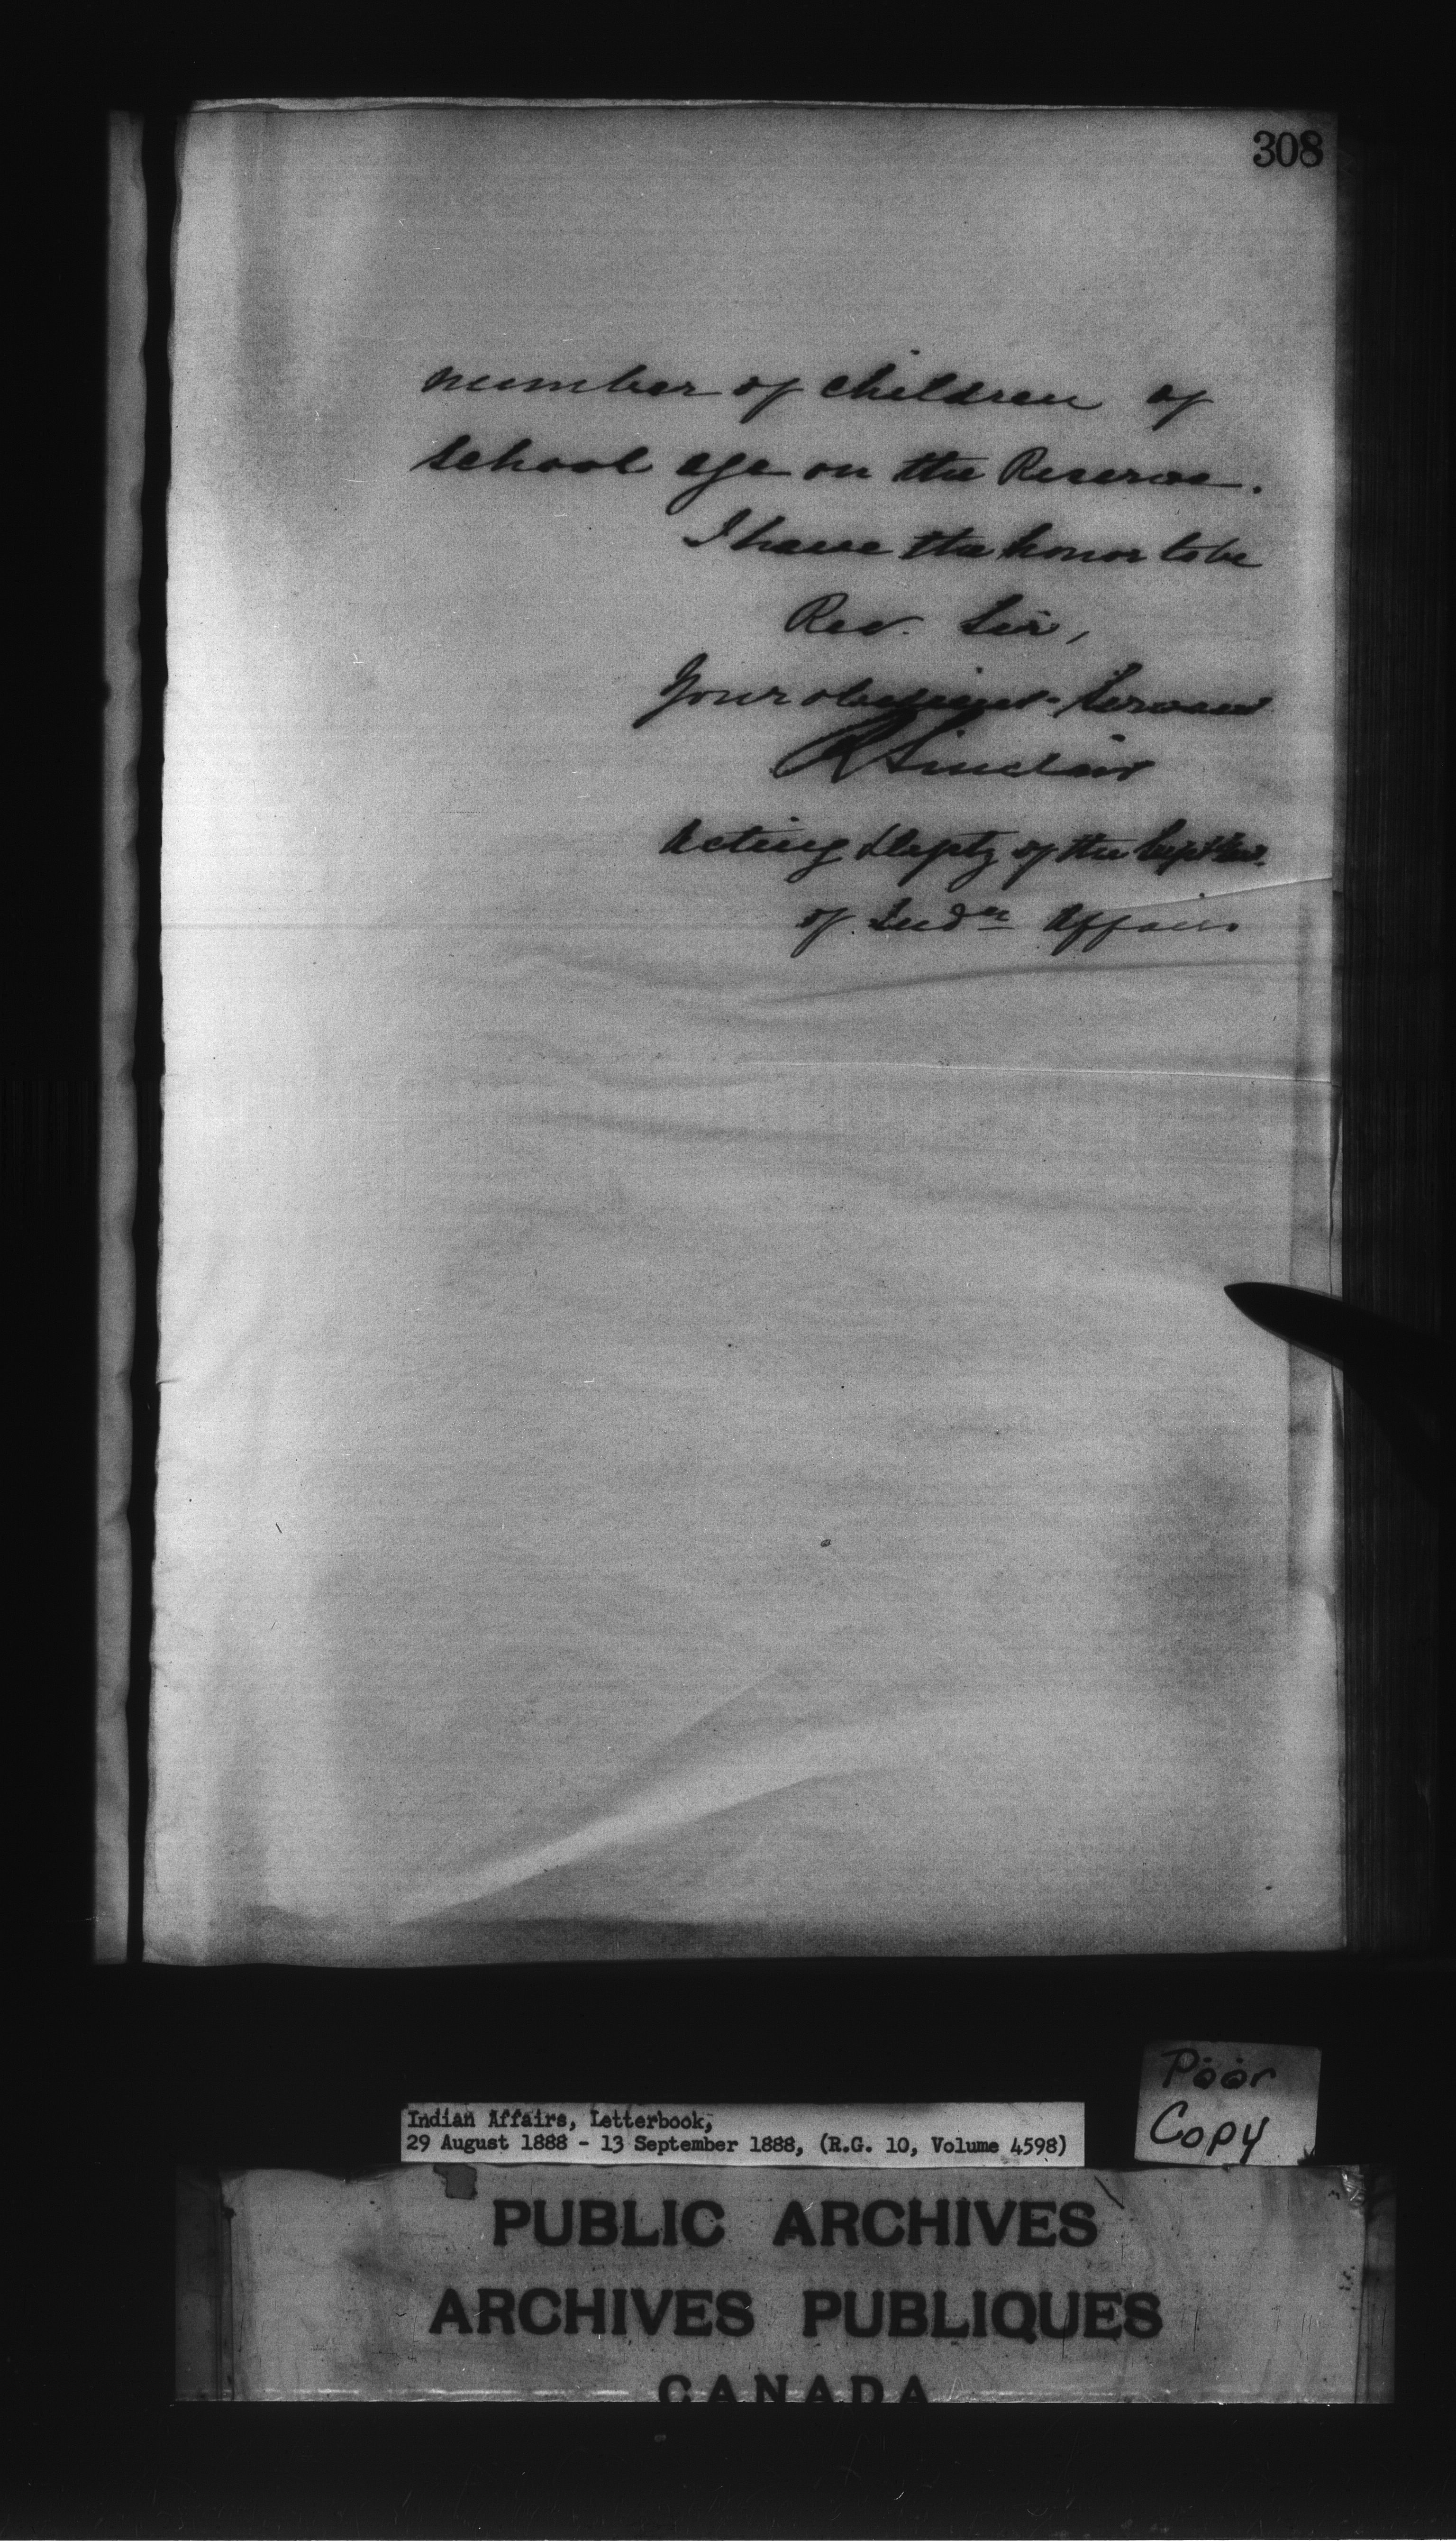 308
number of children of
school age on the Reserve.
I have the honor to be
Rev. Sir,
Your obedient Servant
R Sinclair
Acting Depty of the Supt Gen.
of Indn Affairs
Poor
Copy
Indian Affairs, Letterbook,
29 August 1888 - 13 September 1888, (R.G. 10, Volume 4598)
PUBLIC ARCHIVES
ARCHIVES PUBLIQUES
CANADA